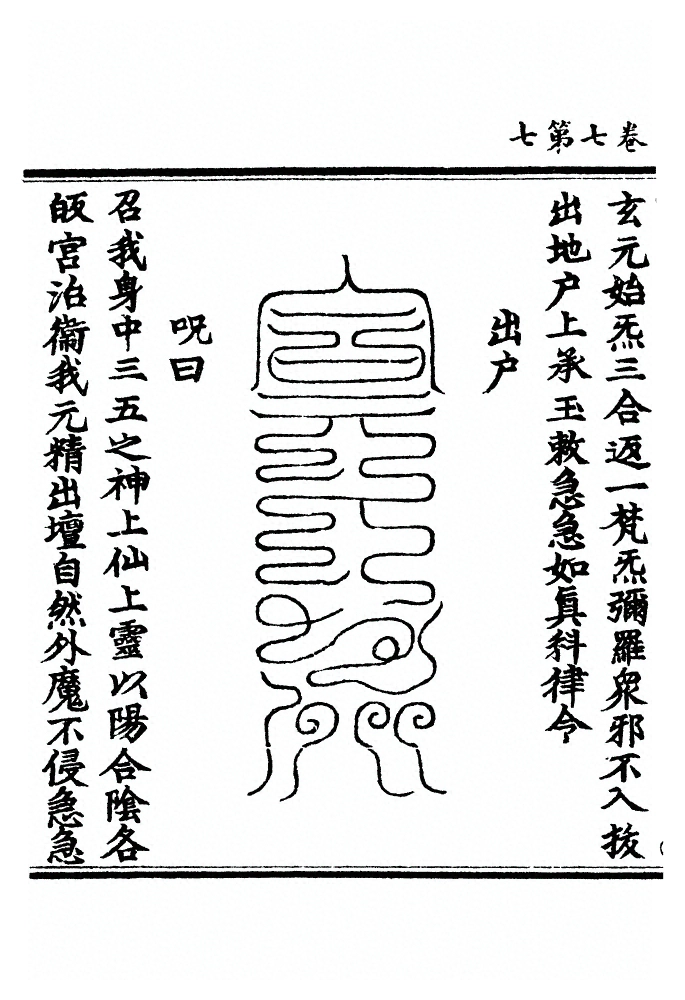 卷七第七
玄元始炁三合返一梵炁彌羅衆邪不入拔
出地户上承玉敕急急如眞科律令
出户
呪曰
召我身中三五之神上仙上靈以陽合陰各
皈宮治衞我元精出壇自然外魔不侵急急